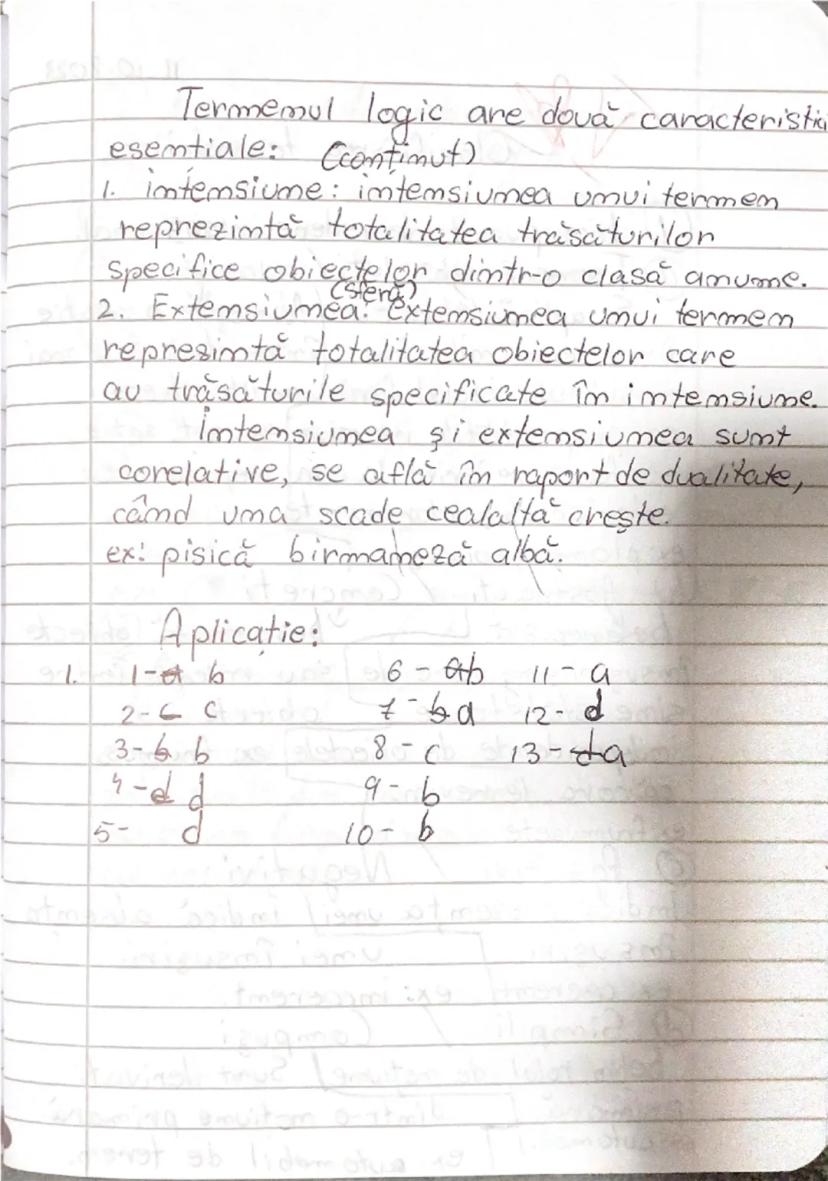 Termenul logic are două caracteristici
esentiale: (conținut)
1. intensiune: intensiunea unui termen
reprezintă totalitatea trăsăturilor
specifice obiectelor dintr-o clasă anume.
(sferă)
2. Extensiunea: extensiunea unui termen
represintă totalitatea obiectelor care
au trăsăturile specificate în intensiune.
Intensiunea și extensiunea sunt
corelative, se află în raport de dualitate,
când una scade cealaltă crește.
ex: pisică birmaneză albă.
Aplicație:
1. 1- b 6 - b 11 - a
2- c 7 - a 12 - d
3- b 8 - c 13 - a
4- d 9 - b
5- d 10 - b